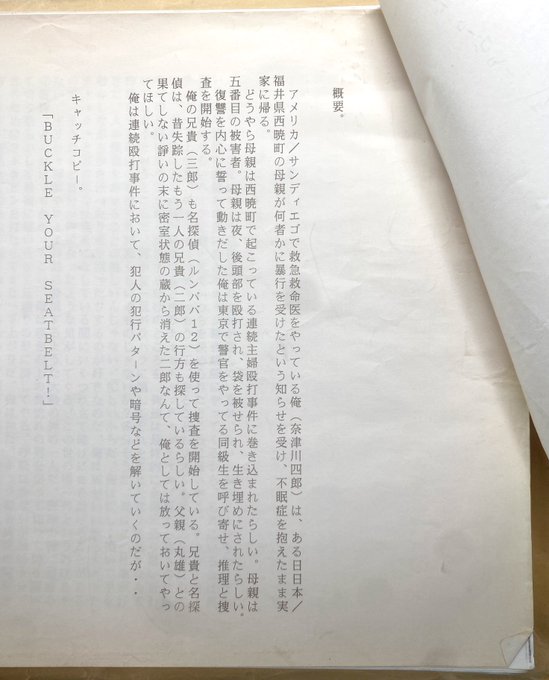 概要。
アメリカ／サンディエゴで救急救命医をやっている俺（奈津川四郎）は、ある日日本／
福井県西暁町の母親が何者かに暴行を受けたという知らせを受け、不眠症を抱えたまま実
家に帰る。
どうやら母親は西暁町で起こっている連続主婦殴打事件に巻き込まれたらしい。母親は
五番目の被害者。母親は夜、後頭部を殴打され、袋を被せられ、生き埋めにされたらしい。
復讐を内心に誓って動きだした俺は東京で警官をやってる同級生を呼び寄せ、推理と捜
査を開始する。
俺の兄貴（三郎）も名探偵（ルンババ１２）を使って捜査を開始している。兄貴と名探
偵は、昔失踪したもう一人の兄貴（二郎）の行方も探しているらしい。父親（丸雄）との
果てしない諍いの末に密室状態の蔵から消えた二郎なんて、俺としては放っておいてやっ
てほしい。
俺は連続殴打事件において、犯人の犯行パターンや暗号などを解いていくのだが・・
キャッチコピー。
「ＢＵＣＫＬＥ　ＹＯＵＲ　ＳＥＡＴＢＥＬＴ！」